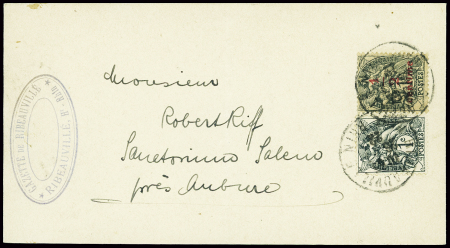 GAZETTE DE RIBEAUVILLÉ
RIBEAUVILLÉ, H-RHIN
Monsieur
Robert Riff
Sanatorium Salem
près Aubure
POSTES